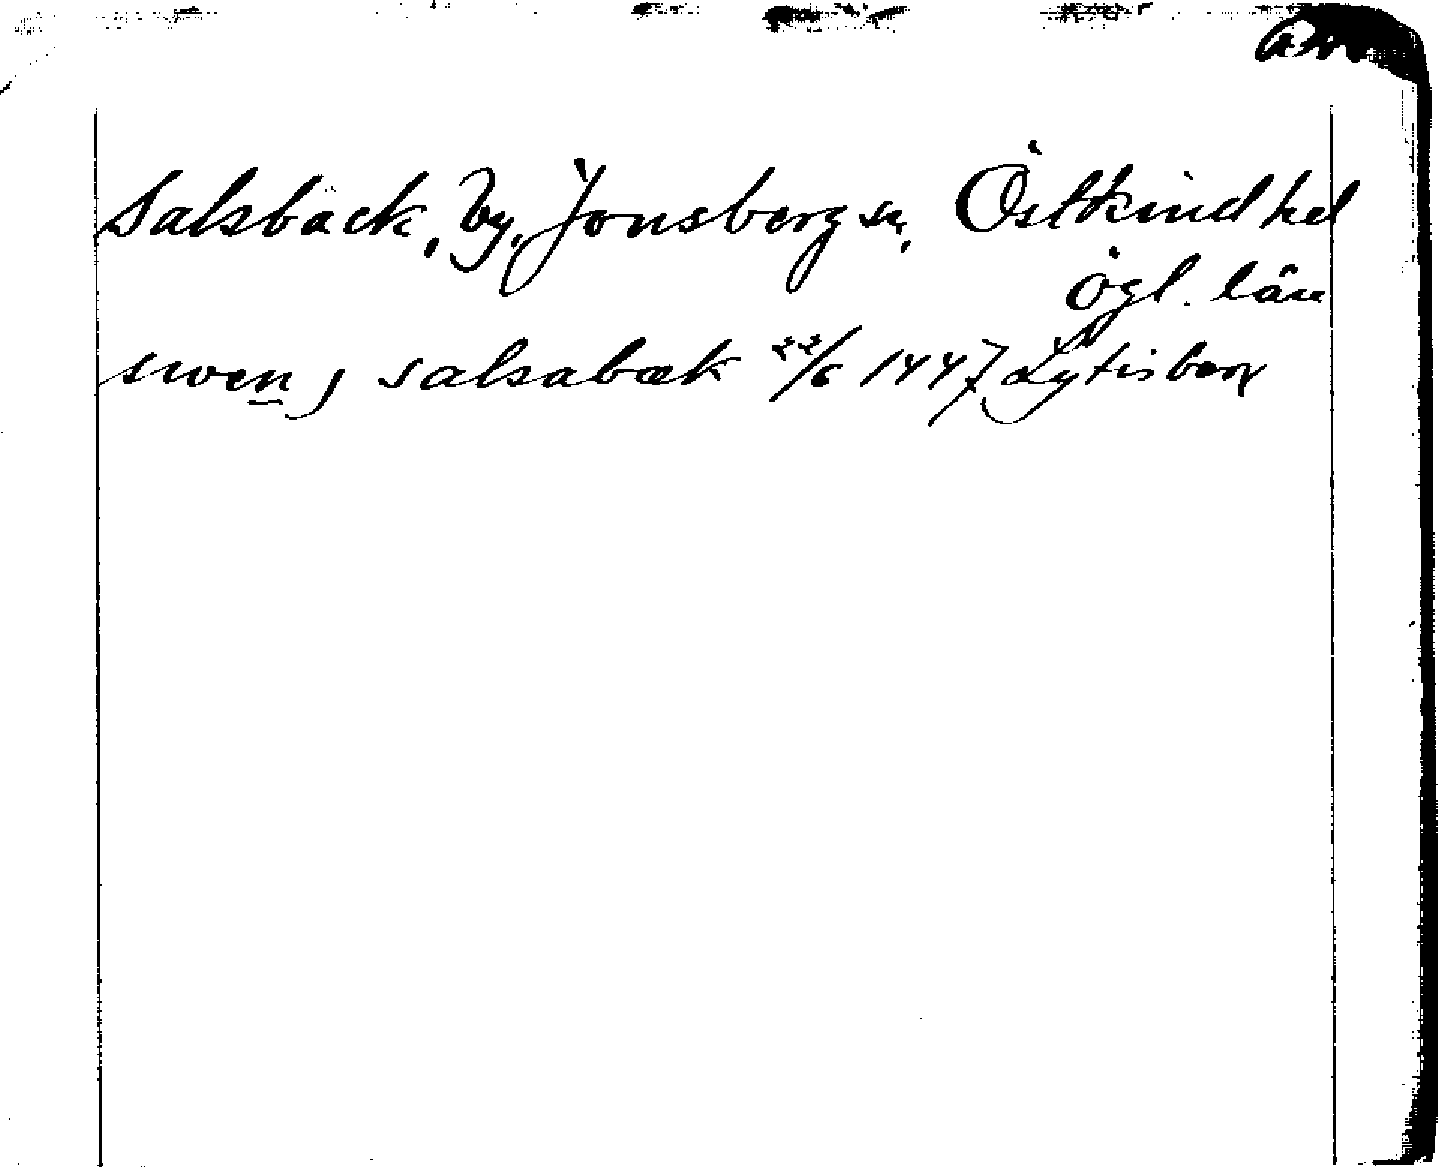 Salsbäck, by, Jonsberg sn, Östkind hd
Ögl. län
swen j salsabæk 22/6 1447 Lytisberg